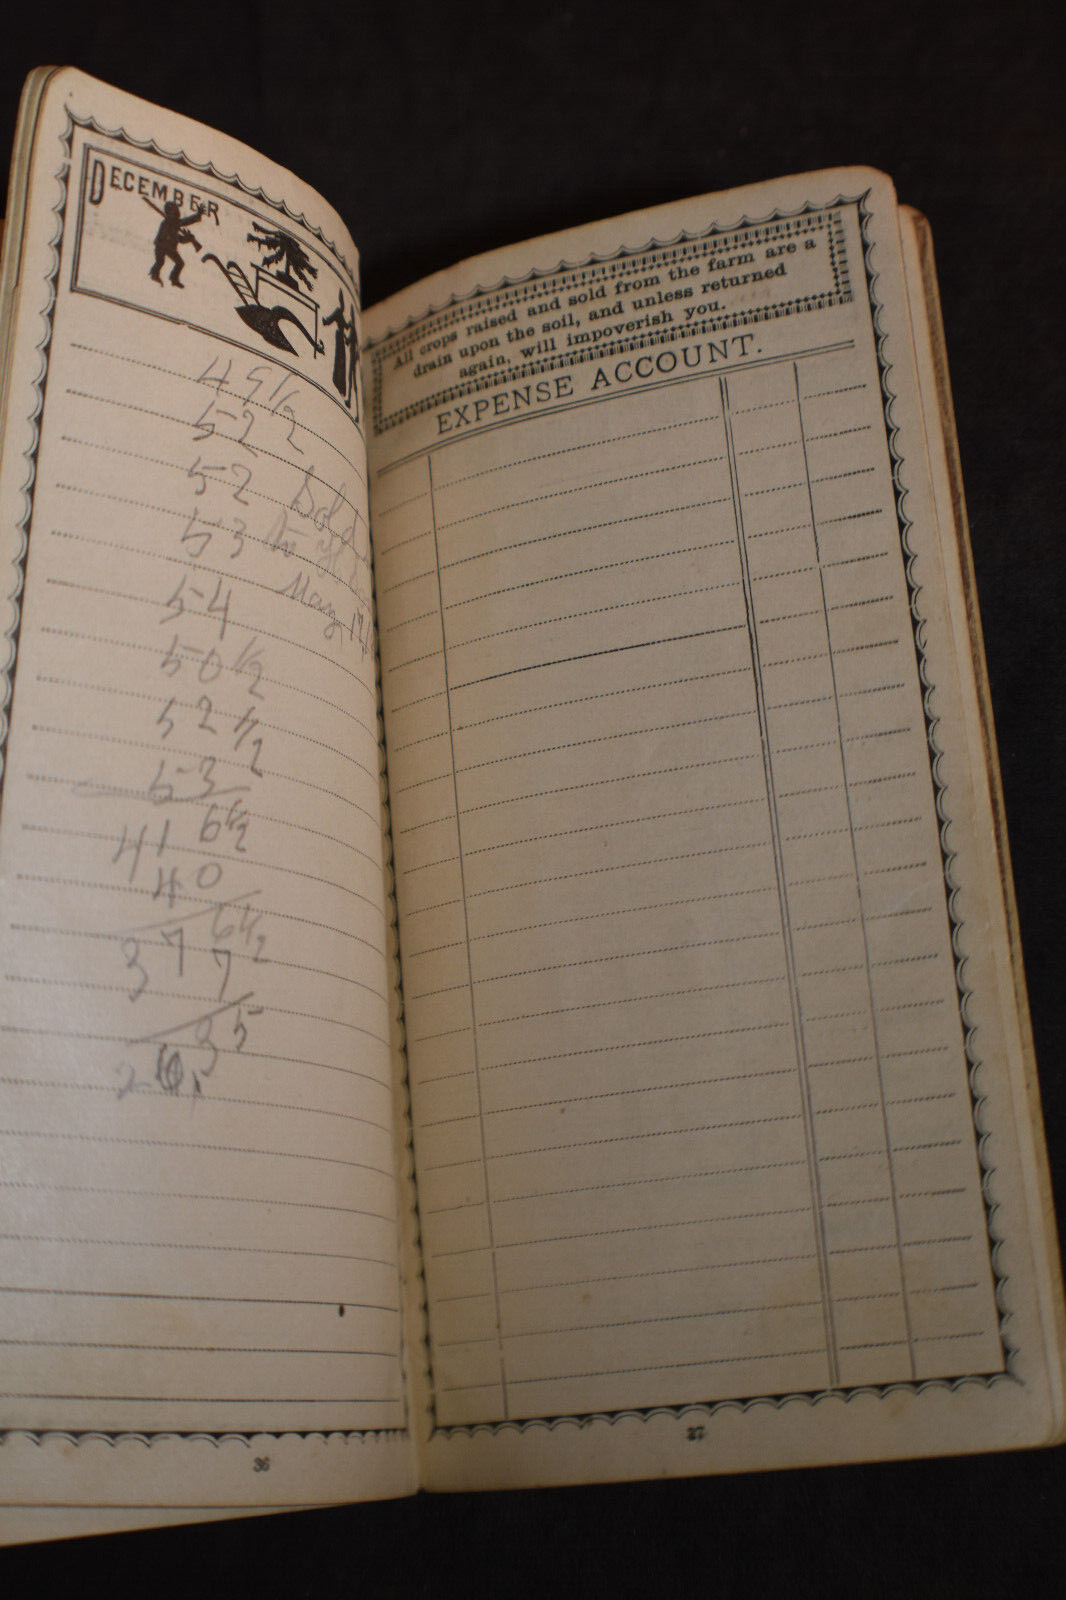 DECEMBER
49 1/2
52
52 Sold
53
54 May 17
50 1/2
52 1/2
53
416 1/2
40
376 1/2
7
35
36
All crops raised and sold from the farm are a
drain upon the soil, and unless returned
again, will impoverish you.
EXPENSE ACCOUNT.
37